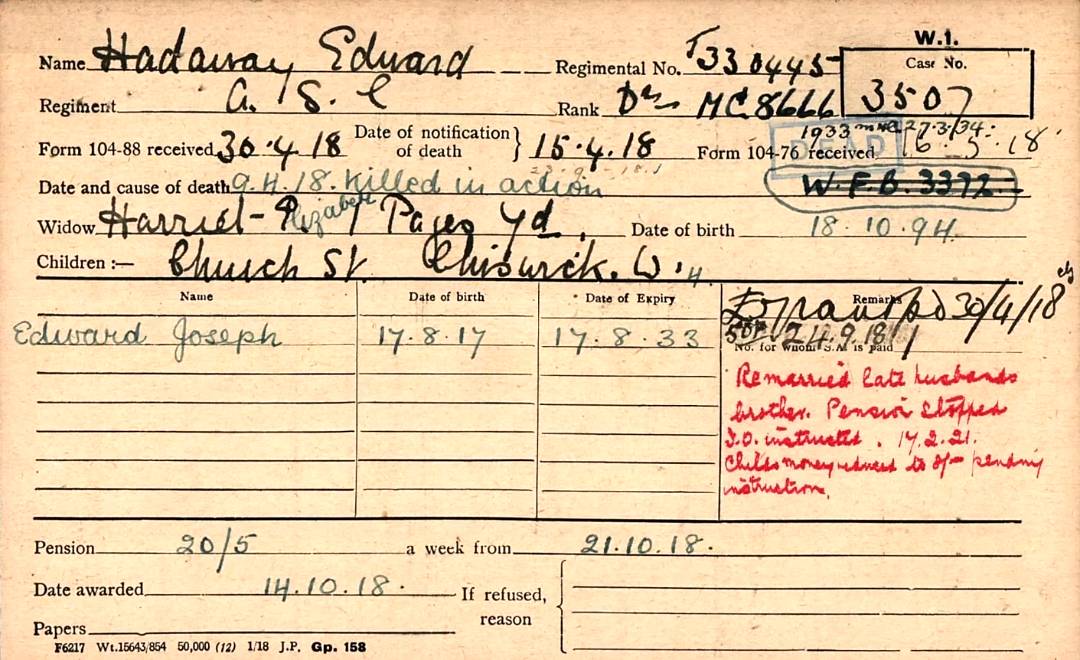 W.1.
Name Hadaway Edward Regimental No. T330445
Case No.
Regiment A. S. C Rank Dr MC 8666 3507
Form 104-88 received 30.4.18 Date of notification of death } 15.4.18 Form 104-76 received 16.5.18
1933 27.3.34
DEAD
Date and cause of death 9.4.18. Killed in action W.F.B. 3372
Elizabeth
Widow Harriet 1 Pages Yd. Date of birth 18.10.94.
Children :— Church St. Chiswick. W.4.
Name Date of birth Date of Expiry Remarks
30/4/18
Edward Joseph 17.8.17 17.8.33 24.9.18
No. for whom S.A. is paid 1
Remarried late husbands
brother. Pension stopped
I.O. instructed. 17.2.21.
Childs money reduced to pending
instruction.
Pension 20/5 a week from 21.10.18.
Date awarded 14.10.18. If refused,
reason
Papers
F6217 Wt.15643/854 50,000 (12) 1/18 J.P. Gp. 158